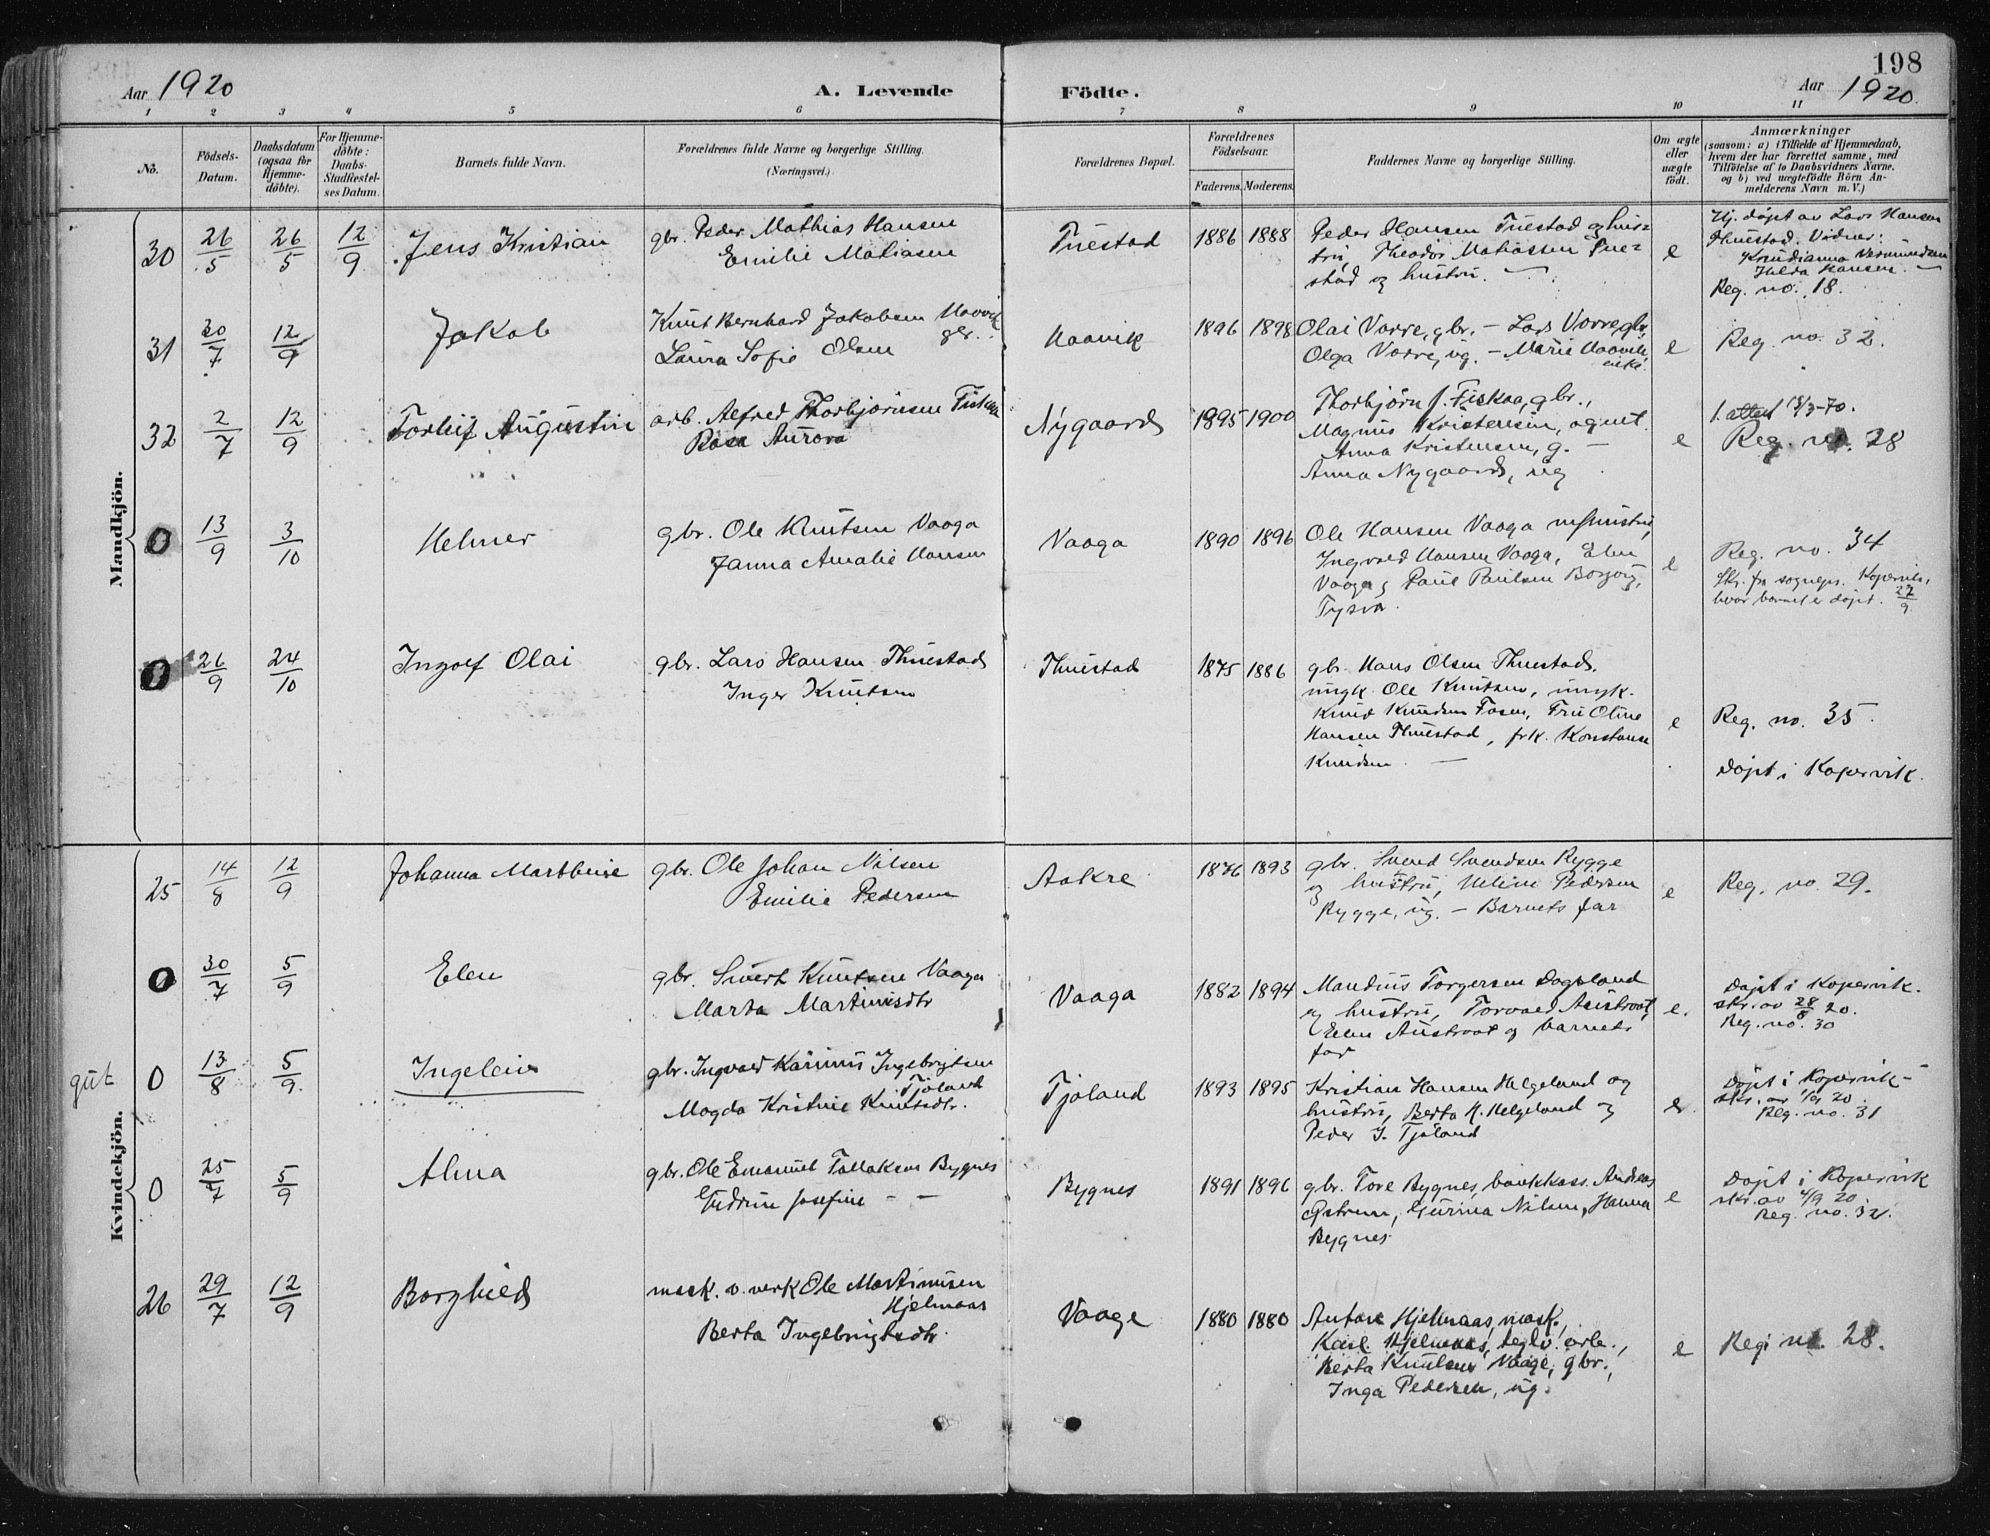 198
Aar 1920
A. Levende Födte.
Aar 1920.
1 2 3 4 5 6 7 8 9 10 11
No.
Födsels-
Datum.
Daabsdatum
(ogsaa for
Hjemme-
döbte).
For Hjemme-
döbte:
Daabs-
Stadfæstel-
ses Datum.
Barnets fulde Navn.
Forældrenes fulde Navne og borgerlige Stilling.
(Næringsvei.)
Forældrenes Bopæl.
Forældrenes
Födselsaar.
Faderens. Moderens.
Faddernes Navne og borgerlige Stilling.
Om ægte
eller
uægte
födt.
Anmærkninger
(saasom: a) i Tilfælde af Hjemmedaab,
hvem der har forrettet samme, med
Tilföielse af to Daabsvidners Navne,
og b) ved uægtefödte Börn An-
melderens Navn m. V.)
Mandkjön.
30 26/5 26/5 12/9 Jens Kristian
gbr. Peder Mathias Hansen
Emilie Matiasen
Tuestad 1886 1888
Peder Hansen Tuestad og hus-
tru, Theodor Matiassen Tue-
stad og hustru. —
e
Hj. døpt av Lars Hansen
Thuestad. Vidner:
Hilda Hansen. —
Reg. no. 18.
31 30/7 12/9 Jakob
Knut Bernhard Jakobsen Haavik
gbr.
Laura Sofie Olsen
Haavik 1896 1898
Olai Vorre, gbr. – Lars Vorre, gbr.
Olga Vorre, ug. – Marie Haavik
enke.
e
Reg. no. 32.
32 2/7 12/9 Torleif Augustin
arb. Alfred Thorbjørnsen Fiskaa
Rosa Aurora
Nygaard 1895 1900
Thorbjørn J. Fiskaa, gbr.,
Magnus Kristensen, agent.
Anna Kristensen, g. —
Anna Nygaard, ug
e
1. attest 18/3-70.
Reg. no. 28
0 13/9 3/10 Helmer
gbr. Ole Knutsen Vaaga
Janna Amalie Hansen
Vaaga 1890 1896
Ole Hansen Vaaga m/hustru,
Ingvald Hansen Vaaga, Elen
Vaaga, Paul Paulsen
Tysvær.
e
Reg. no. 34
Skr. fra sogneps. Kopervik,
hvor barnet er døpt. 27/9
0 26/9 24/10 Ingolf Olai
gbr. Lars Hansen Thuestad
Inger Knutsen
Thuestad 1875 1886
gbr. Hans Olsen Thuestad.
ungk. Ole Knutsen, ungk.
Knud Knudsen Tosen, Fru Oline
Hansen Thuestad, frk. Konstanse
Knudsen. —
e
Reg. no. 35.
Døpt i Kopervik.
Kvindekjön.
25 14/8 12/9 Johanna Marthine
gbr. Ole Johan Nilsen
Emilie Pedersen
Aakre 1876 1893
gbr. Svend Svendsen Rygge
og hustru, Helene Pedersen
Rygge, ug. – Barnets far
e
Reg. no. 29.
0 30/7 5/9 Elen
gbr. Sivert Knutsen Vaaga
Marta Martinisdtr
Vaaga 1882 1894
Mandius Torgersen Dogsland
og hustru, Torvald Austraat,
Elen Austraat og barnets
far
e.
Døpt i Kopervik.
skr. av 28/8 20.
Reg. no. 30
gut
0 13/8 5/9. Ingeleiv
gbr. Ingvald Karinus Ingebrigtsen
Tjøland
Magda Kristine Knutsdtr.
Tjøland 1893 1895
Kristian Hansen Helgeland og
hustru, Berta K. Helgeland og
Peder J. Tjøland
e.
Døpt i Kopervik –
skr. av 1/9 20.
Reg. no. 31
0 25/7 5/9 Alma
gbr. Ole Emanuel Tollaksen Bygnes
Gudrun Josefine – –
Bygnes 1891 1896
gbr. Tore Bygnes, bankkass. Andreas
Østrem, Gurina Nilsen, Hanna
Bygnes
e
Døpt i Kopervik
skr. av 4/9 20.
Reg. no. 32.
26 29/7 12/9 Borghild
mask. v. verk Ole Martinusen
Hjelmaas
Berta Ingebrigtsdtr.
Vaage 1880 1880
Anton Hjelmaas, mask.,
Karl Hjelmaas, teglv. arb.,
Berta Knutsen Vaage, gbr.,
Inga Pedersen, ug.
e
Reg. no. 28.